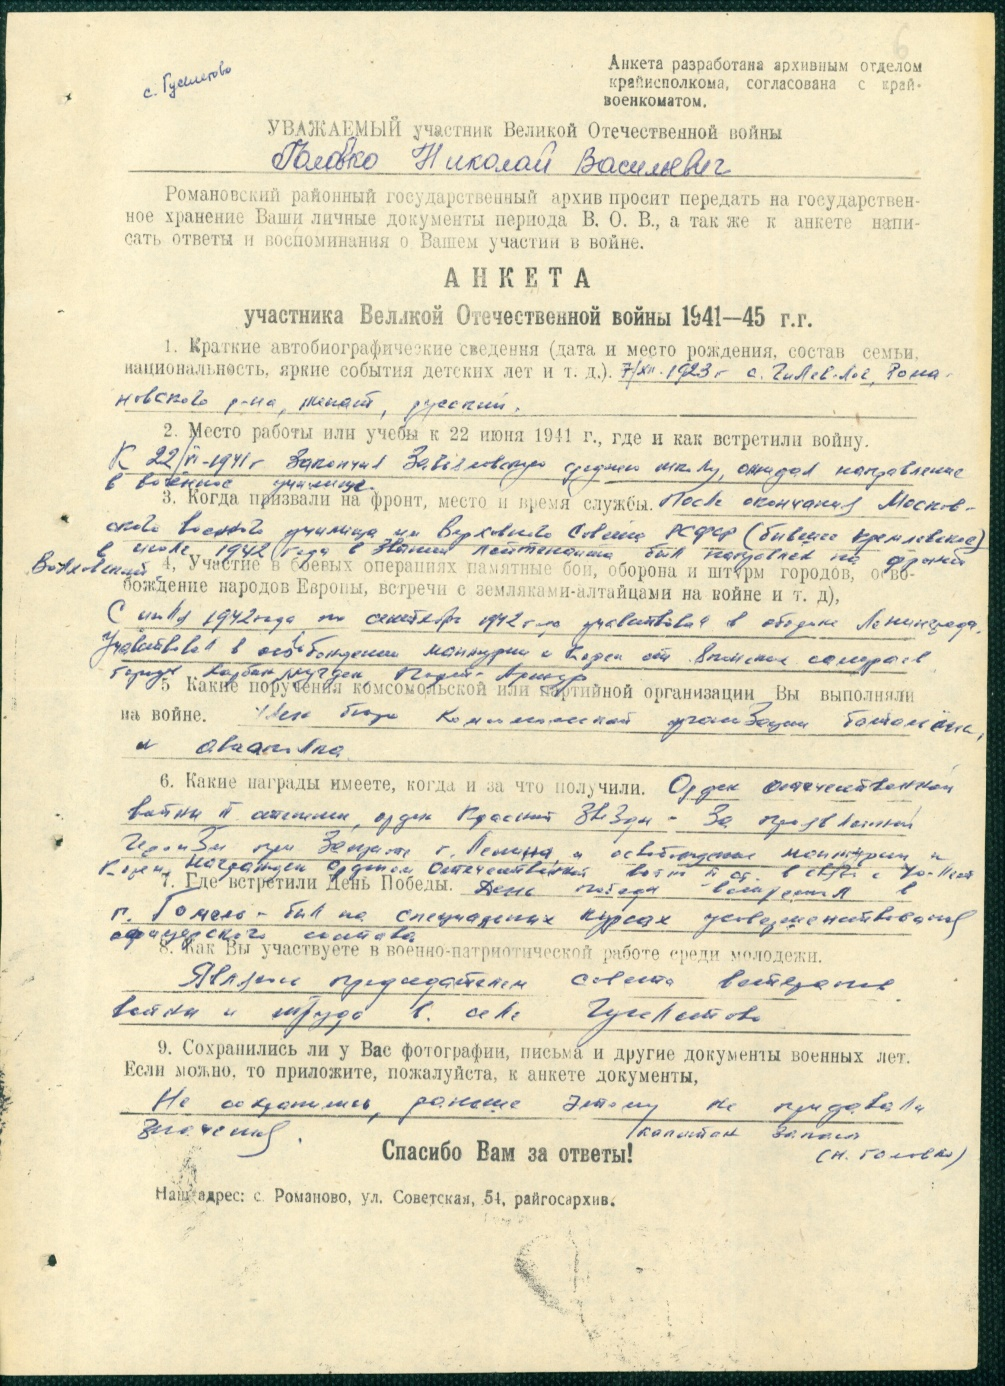 6
с. Гуселетово
Анкета разработана архивным отделом
крайисполкома, согласована с край-
военкоматом.
УВАЖАЕМЫЙ участник Великой Отечественной войны
Головко Николай Васильевич
Романовский районный государственный архив просит передать на государствен-
ное хранение Ваши личные документы периода В. О. В., а так же к анкете напи-
сать ответы и воспоминания о Вашем участии в войне.
АНКЕТА
участника Великой Отечественной войны 1941—45 г.г.
1. Краткие автобиографические сведения (дата и место рождения, состав семьи,
национальность, яркие события детских лет и т. д.). 7/XII-1923 г с. Гилев-Лог, Рома-
новского р-на, женат, русский.
2. Место работы или учебы к 22 июня 1941 г., где и как встретили войну.
К 22/VI-1941 г закончил Завьяловскую среднюю школу, ожидал направление
в военное училище.
3. Когда призвали на фронт, место и время службы. После окончания Москов-
ского военного училища им Верховного Совета РСФСР (бывшее кремлевское)
в июле 1942 года в звании лейтенанта был направлен на фронт
Волховский
4, Участие в боевых операциях памятные бои, оборона и штурм городов, осво-
бождение народов Европы, встречи с земляками-алтайцами на войне и т. д),
С июля 1942 года по сентябрь 1942 года учавствовал в обороне Ленинграда.
Учавствовал в освобождении манчжурии и Кореи от Японских самураев
города Харбин, Мугден Порт-Артур
5 Какие поручения комсомольской или партийной организации Вы выполняли
на войне. Член бюро Комсомольской организации батальона,
и авиаполка.
6. Какие награды имеете, когда и за что получили. Орден отечественной
войны II степени, орден Красной Звезды - За проявленный
Героизм при Защите г. Ленина, и освобождение манчжурии и
Кореи, награжден орденом отечественной войны II ст. в связи с 40-лет
7. Где встретили День Победы. День победы встретил в
г. Гомель - был на специальных курсах усовершенствования
офицерского состава
8. Как Вы участвуете в военно-патриотической работе среди молодежи.
Являюсь председателем совета ветеранов
войны и труда в. селе Гуселетово
9. Сохранились ли у Вас фотографии, письма и другие документы военных лет.
Если можно, то приложите, пожалуйста, к анкете документы,
Не сохранились, раньше этому не придавали
значения. капитан запаса
Спасибо Вам за ответы! (Н. Головко)
Наш адрес: с. Романово, ул. Советская, 54, райгосархив.